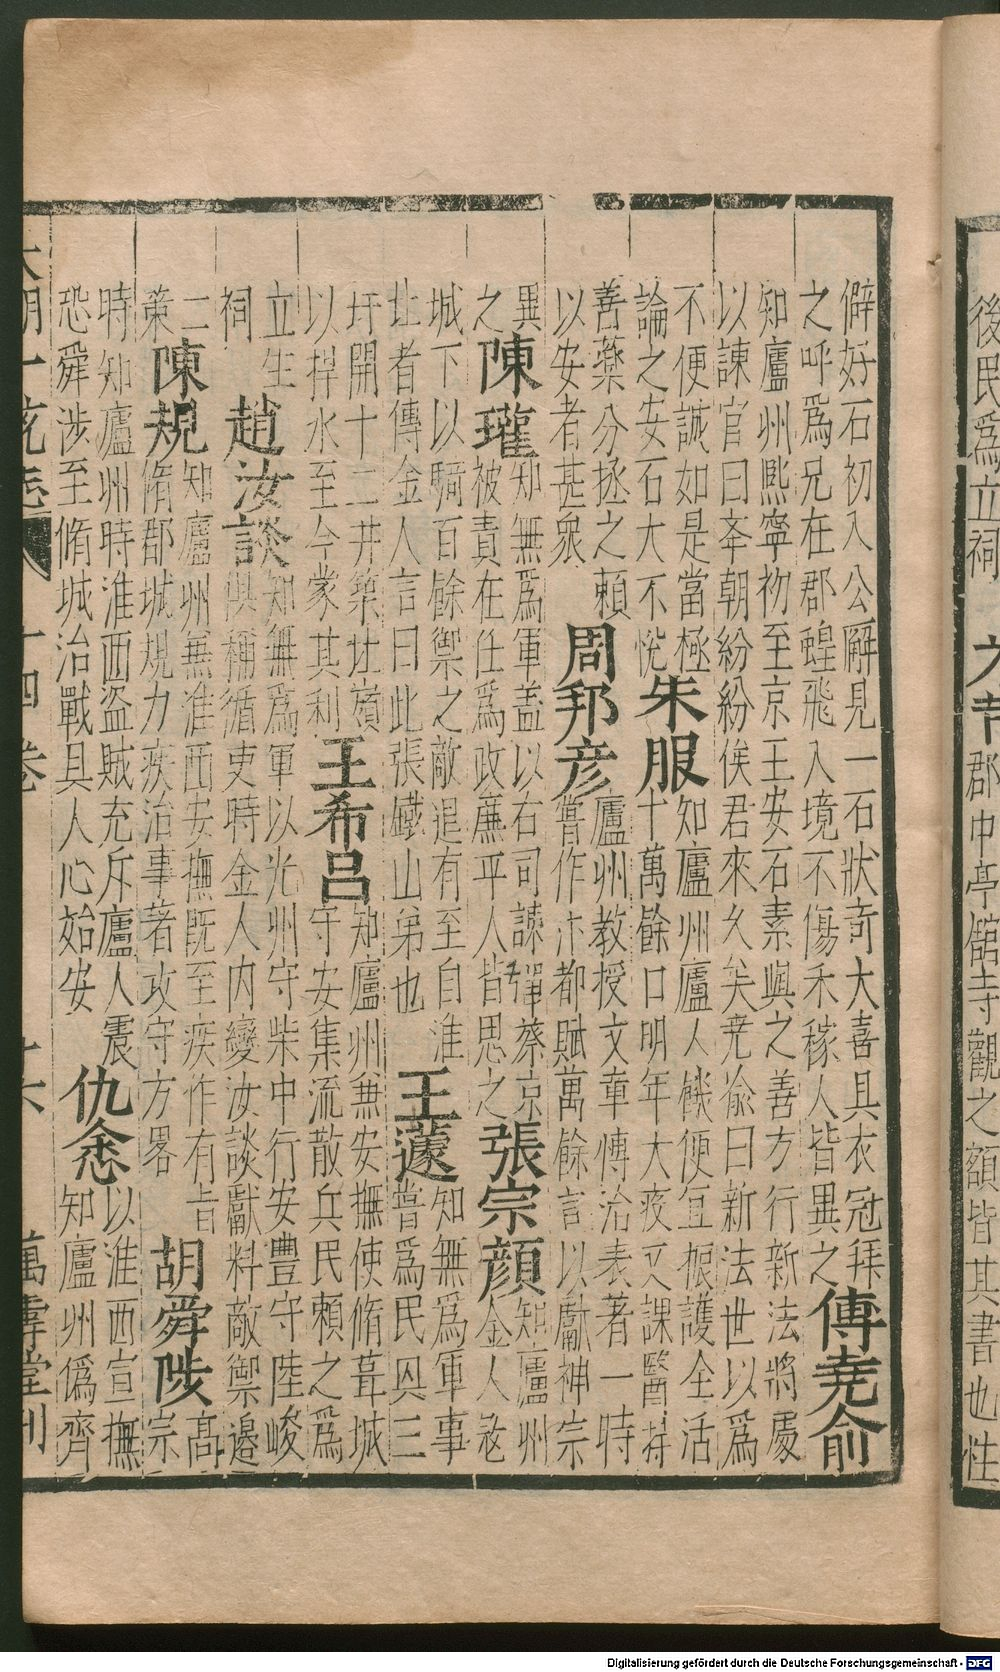 後民爲立祠
郡中亭館寺觀之額皆其書也性
僻好石初入公廨見一石狀奇大喜具衣冠拜
之呼爲兄在郡蝗飛入境不傷禾稼人皆異之
傅堯俞
知廬州熙寧初至京王安石素與之善方行新法將處
以諫官曰本朝紛紛俟君來久矣堯俞曰新法世以爲
不便誠如是當極
論之安石大不悅
朱服
知廬州廬人饑便宜振護全活
十萬餘口明年大疫又課醫持
善藥分拯之賴
以安者甚衆
周邦彦
廬州教授文章傅治表著一時
嘗作汴都賦萬餘言以獻神宗
異
之
陳瓘
知無爲軍盖以右司諫彈蔡京
被責在任爲政廉平人皆思之
張宗顏
知廬州
金人冦
城下以騎百餘禦之敵退有至自淮
北者傳金人言曰此張鐵山弟也
王蘧
知無爲軍事
嘗爲民興三
圩開十二井築北嶺
以捍水至今蒙其利
王希呂
知廬州兼安撫使脩葺城
守安集流散兵民賴之爲
立生
祠
趙汝談
知無爲軍以光州守柴中行安豐守陸峻
俱稱循吏時金人内變汝談獻料敵禦邊
二
策
陳規
知廬州兼淮西安撫既至疾作有旨
脩郡城規力疾治事著攻守方畧
胡舜陟
高
宗
時知廬州時淮西盗賊充斥廬人震
恐舜涉至脩城治戰具人心始安
仇悆
以淮西宣撫
知廬州僞齊
大明一統志 十四卷 十六 萬壽堂刊
Digitalisierung gefördert durch die Deutsche Forschungsgemeinschaft - DFG